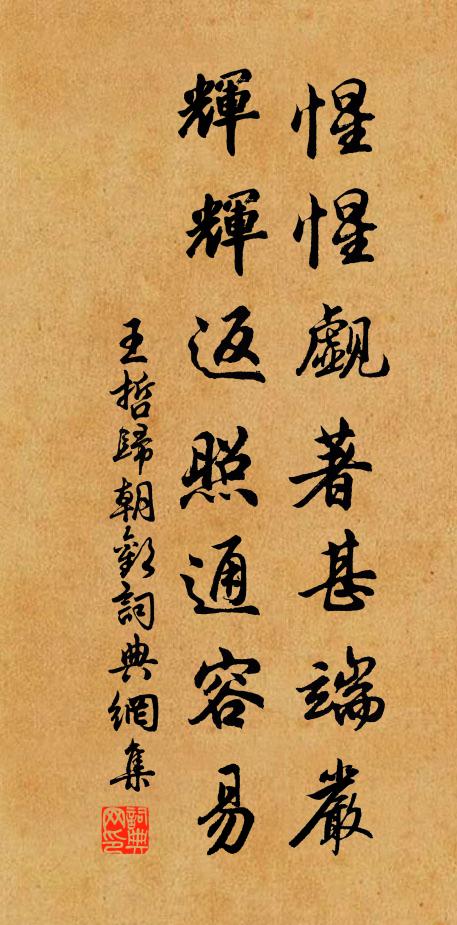 惺惺覷著甚端嚴
輝輝返照通容易
王哲歸朝歡詞典網集
詞典网印